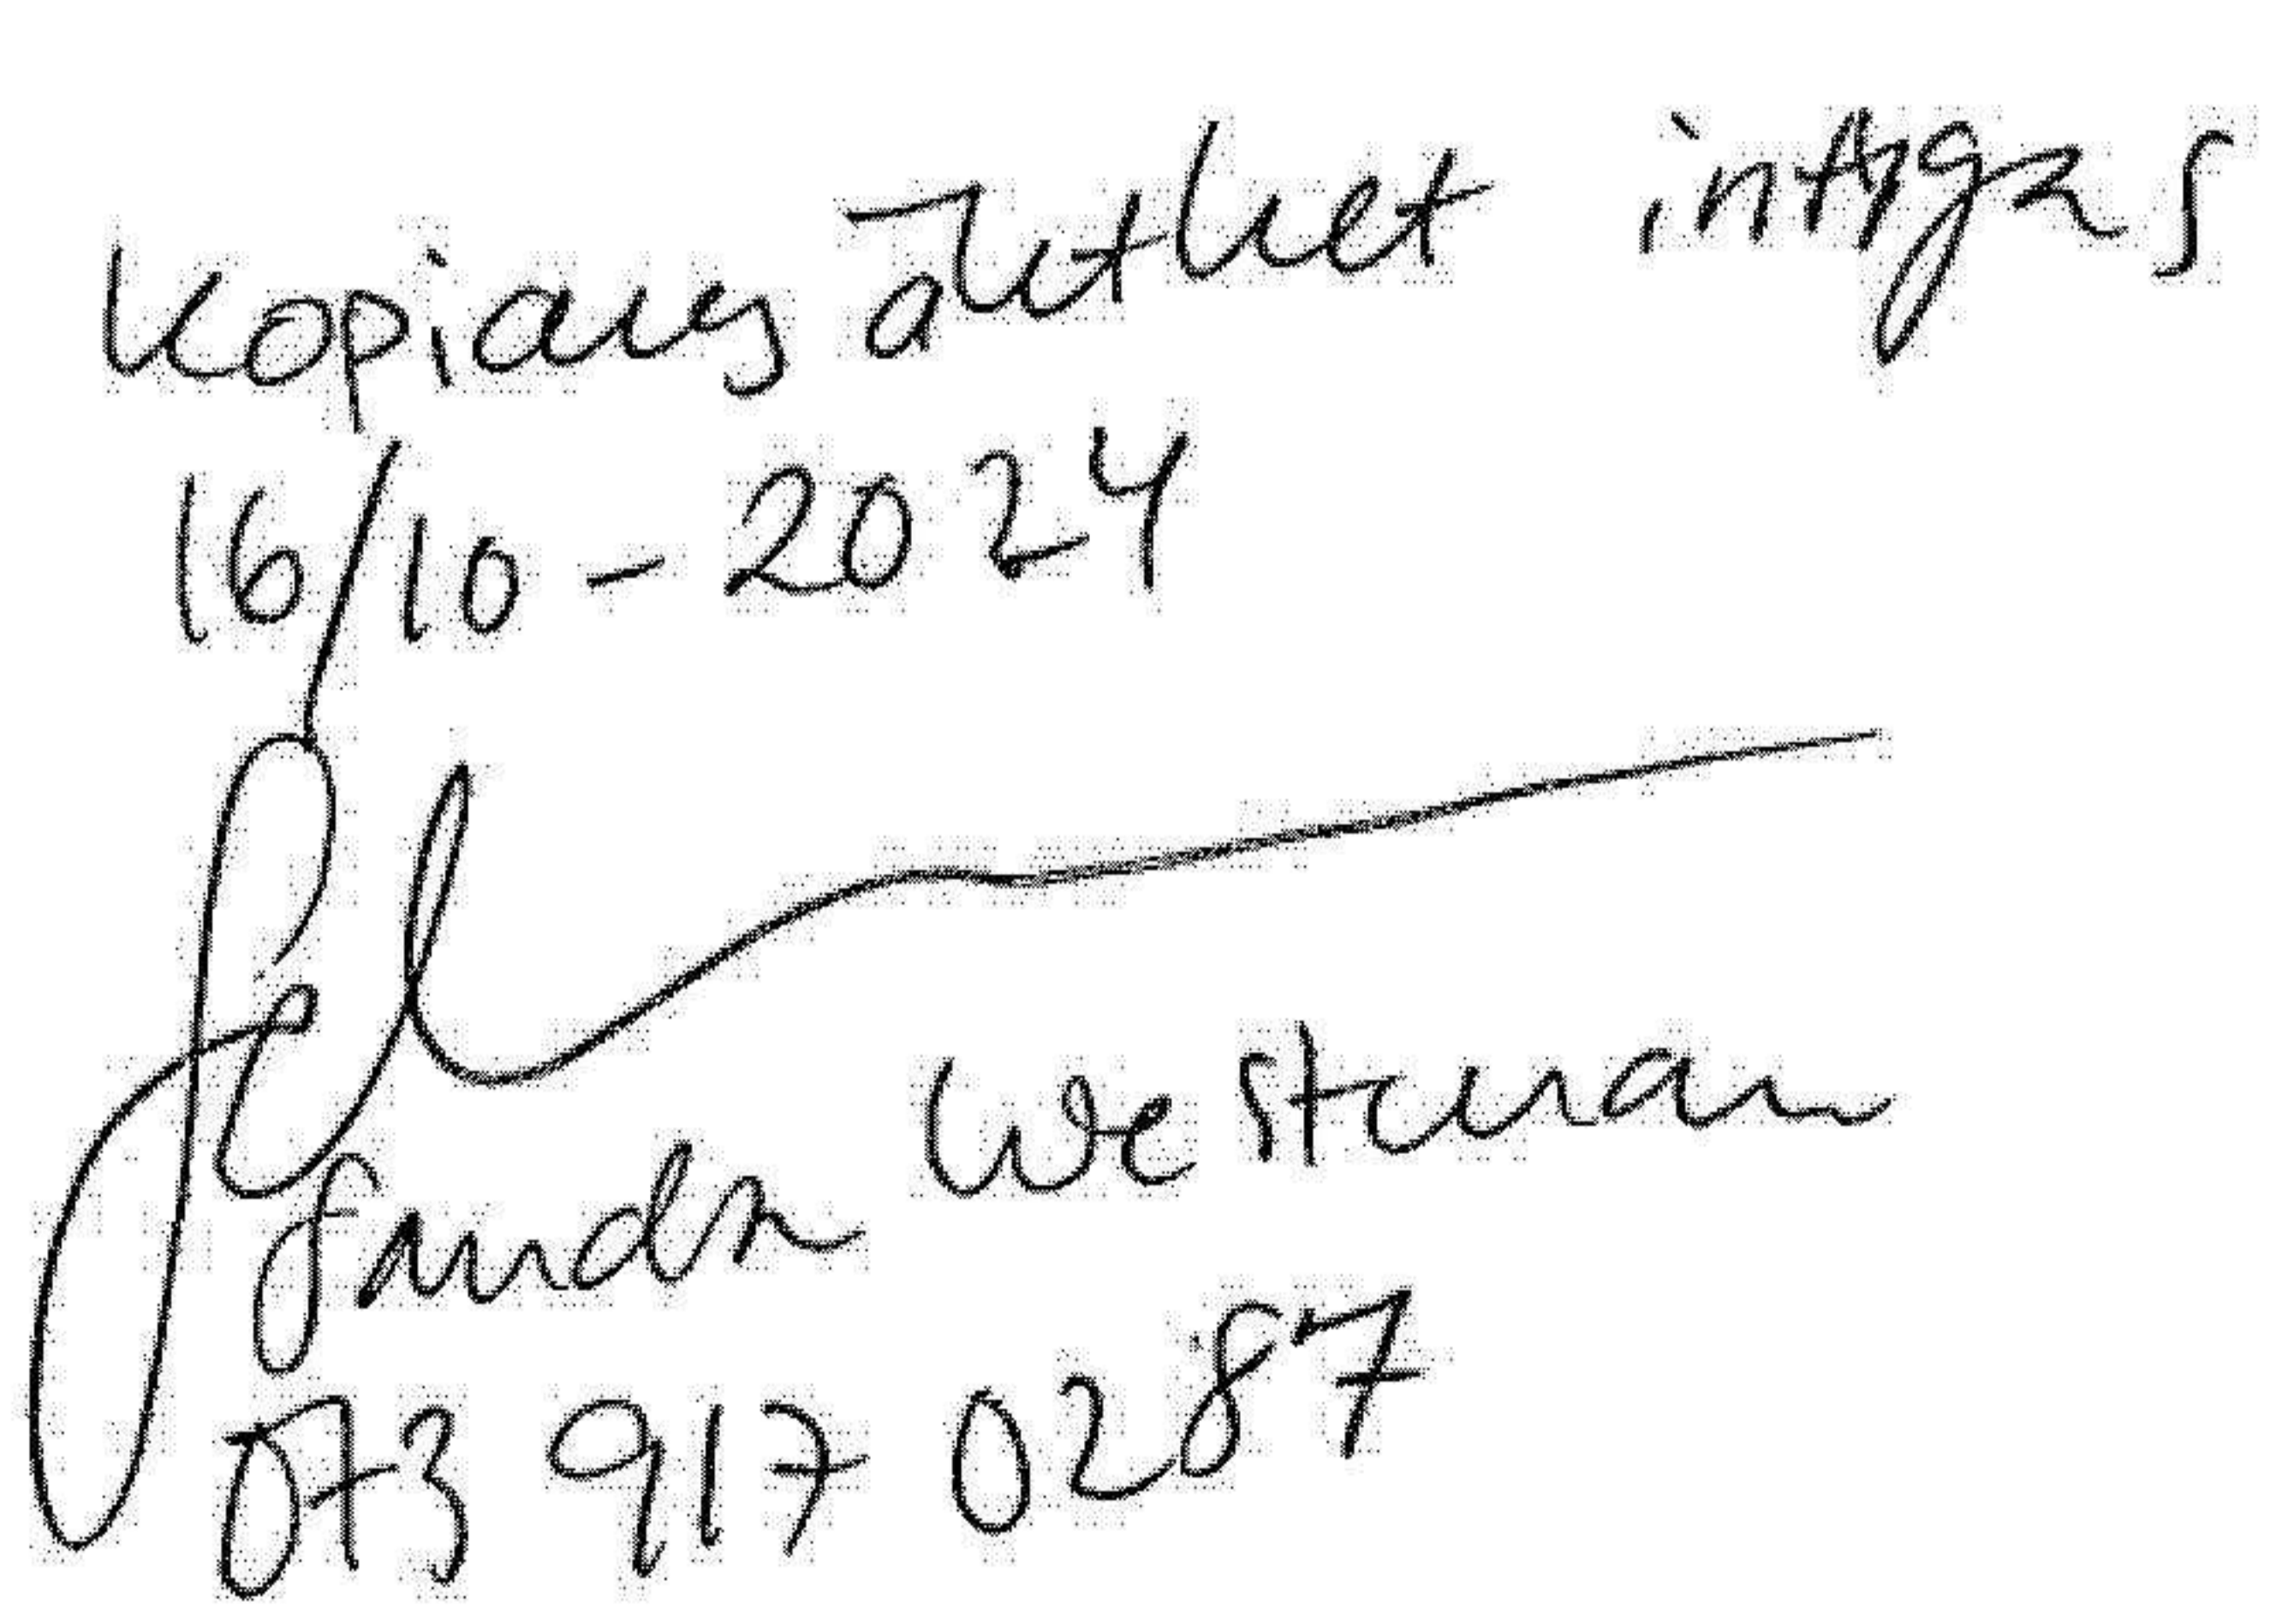 Kopians äkthet intygas
16/10-2024
Sandra Westman
073 917 0287